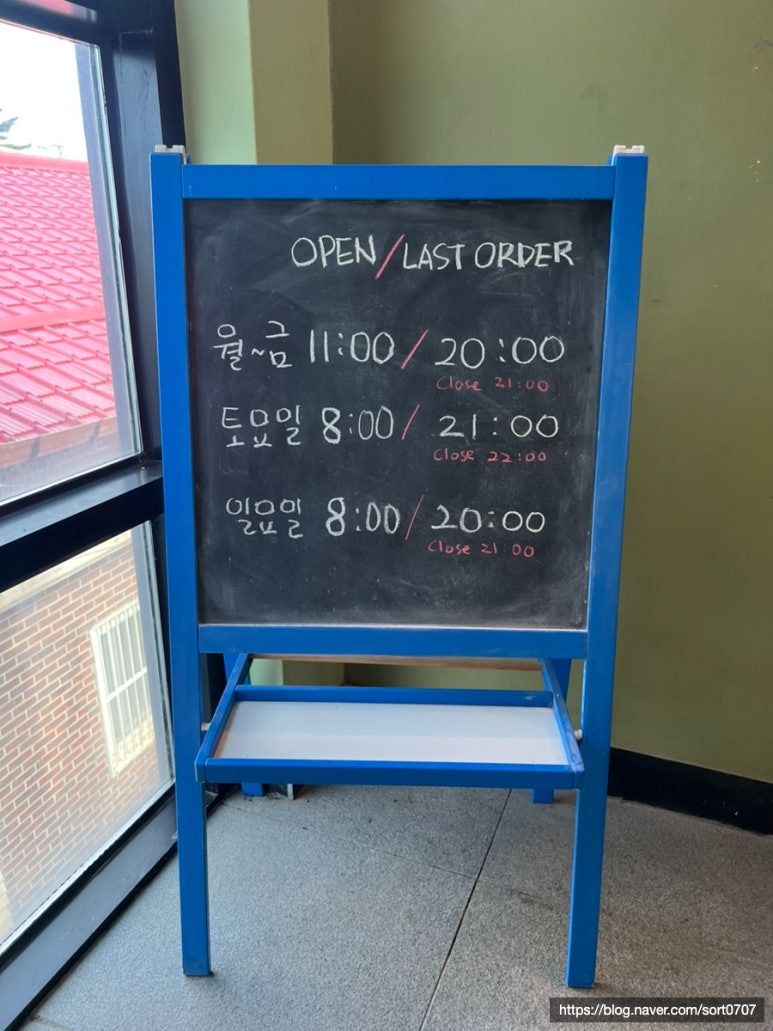 OPEN/LAST ORDER
월~금 11:00/20:00
Close 21:00
토요일 8:00/21:00
Close 22:00
일요일 8:00/20:00
Close 21:00
https://blog.naver.com/sort0707